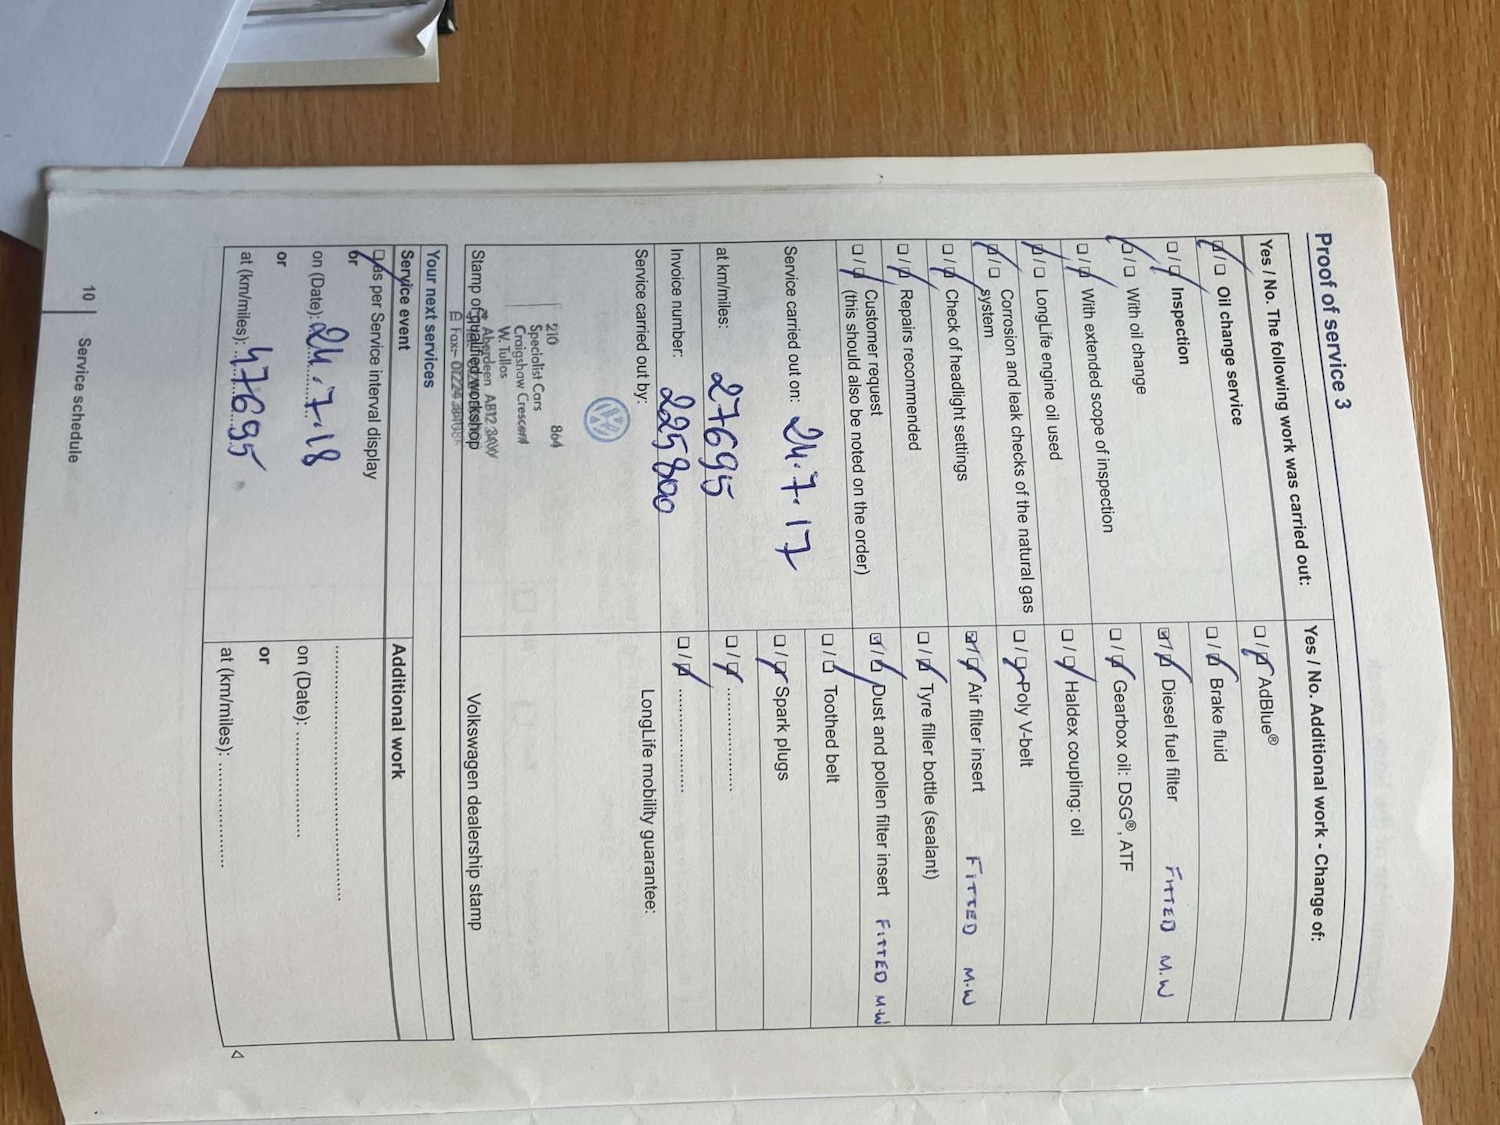 Proof of service 3
Yes / No. The following work was carried out:
Oil change service
Inspection
With oil change
With extended scope of inspection
LongLife engine oil used
Corrosion and leak checks of the natural gas
system
Check of headlight settings
Repairs recommended
Customer request
(this should also be noted on the order)
Service carried out on: 24.7.17
at km/miles: 27695
Invoice number: 225800
Service carried out by:
210 864
Specialist Cars
Craigshaw Crescent
W. Tullos
Aberdeen AB12 3AW
Fax:- 01224
Stamp of qualified workshop
Yes / No. Additional work - Change of:
AdBlue®
Brake fluid
Diesel fuel filter FITTED M.W
Gearbox oil: DSG®, ATF
Haldex coupling: oil
Poly V-belt
Air filter insert FITTED M.W
Tyre filler bottle (sealant)
Dust and pollen filter insert FITTED M.W
Toothed belt
Spark plugs
LongLife mobility guarantee:
Volkswagen dealership stamp
Your next services
Service event
as per Service interval display
or
on (Date): 24.7.18
or
at (km/miles): 47695
Additional work
on (Date):
or
at (km/miles):
10 Service schedule